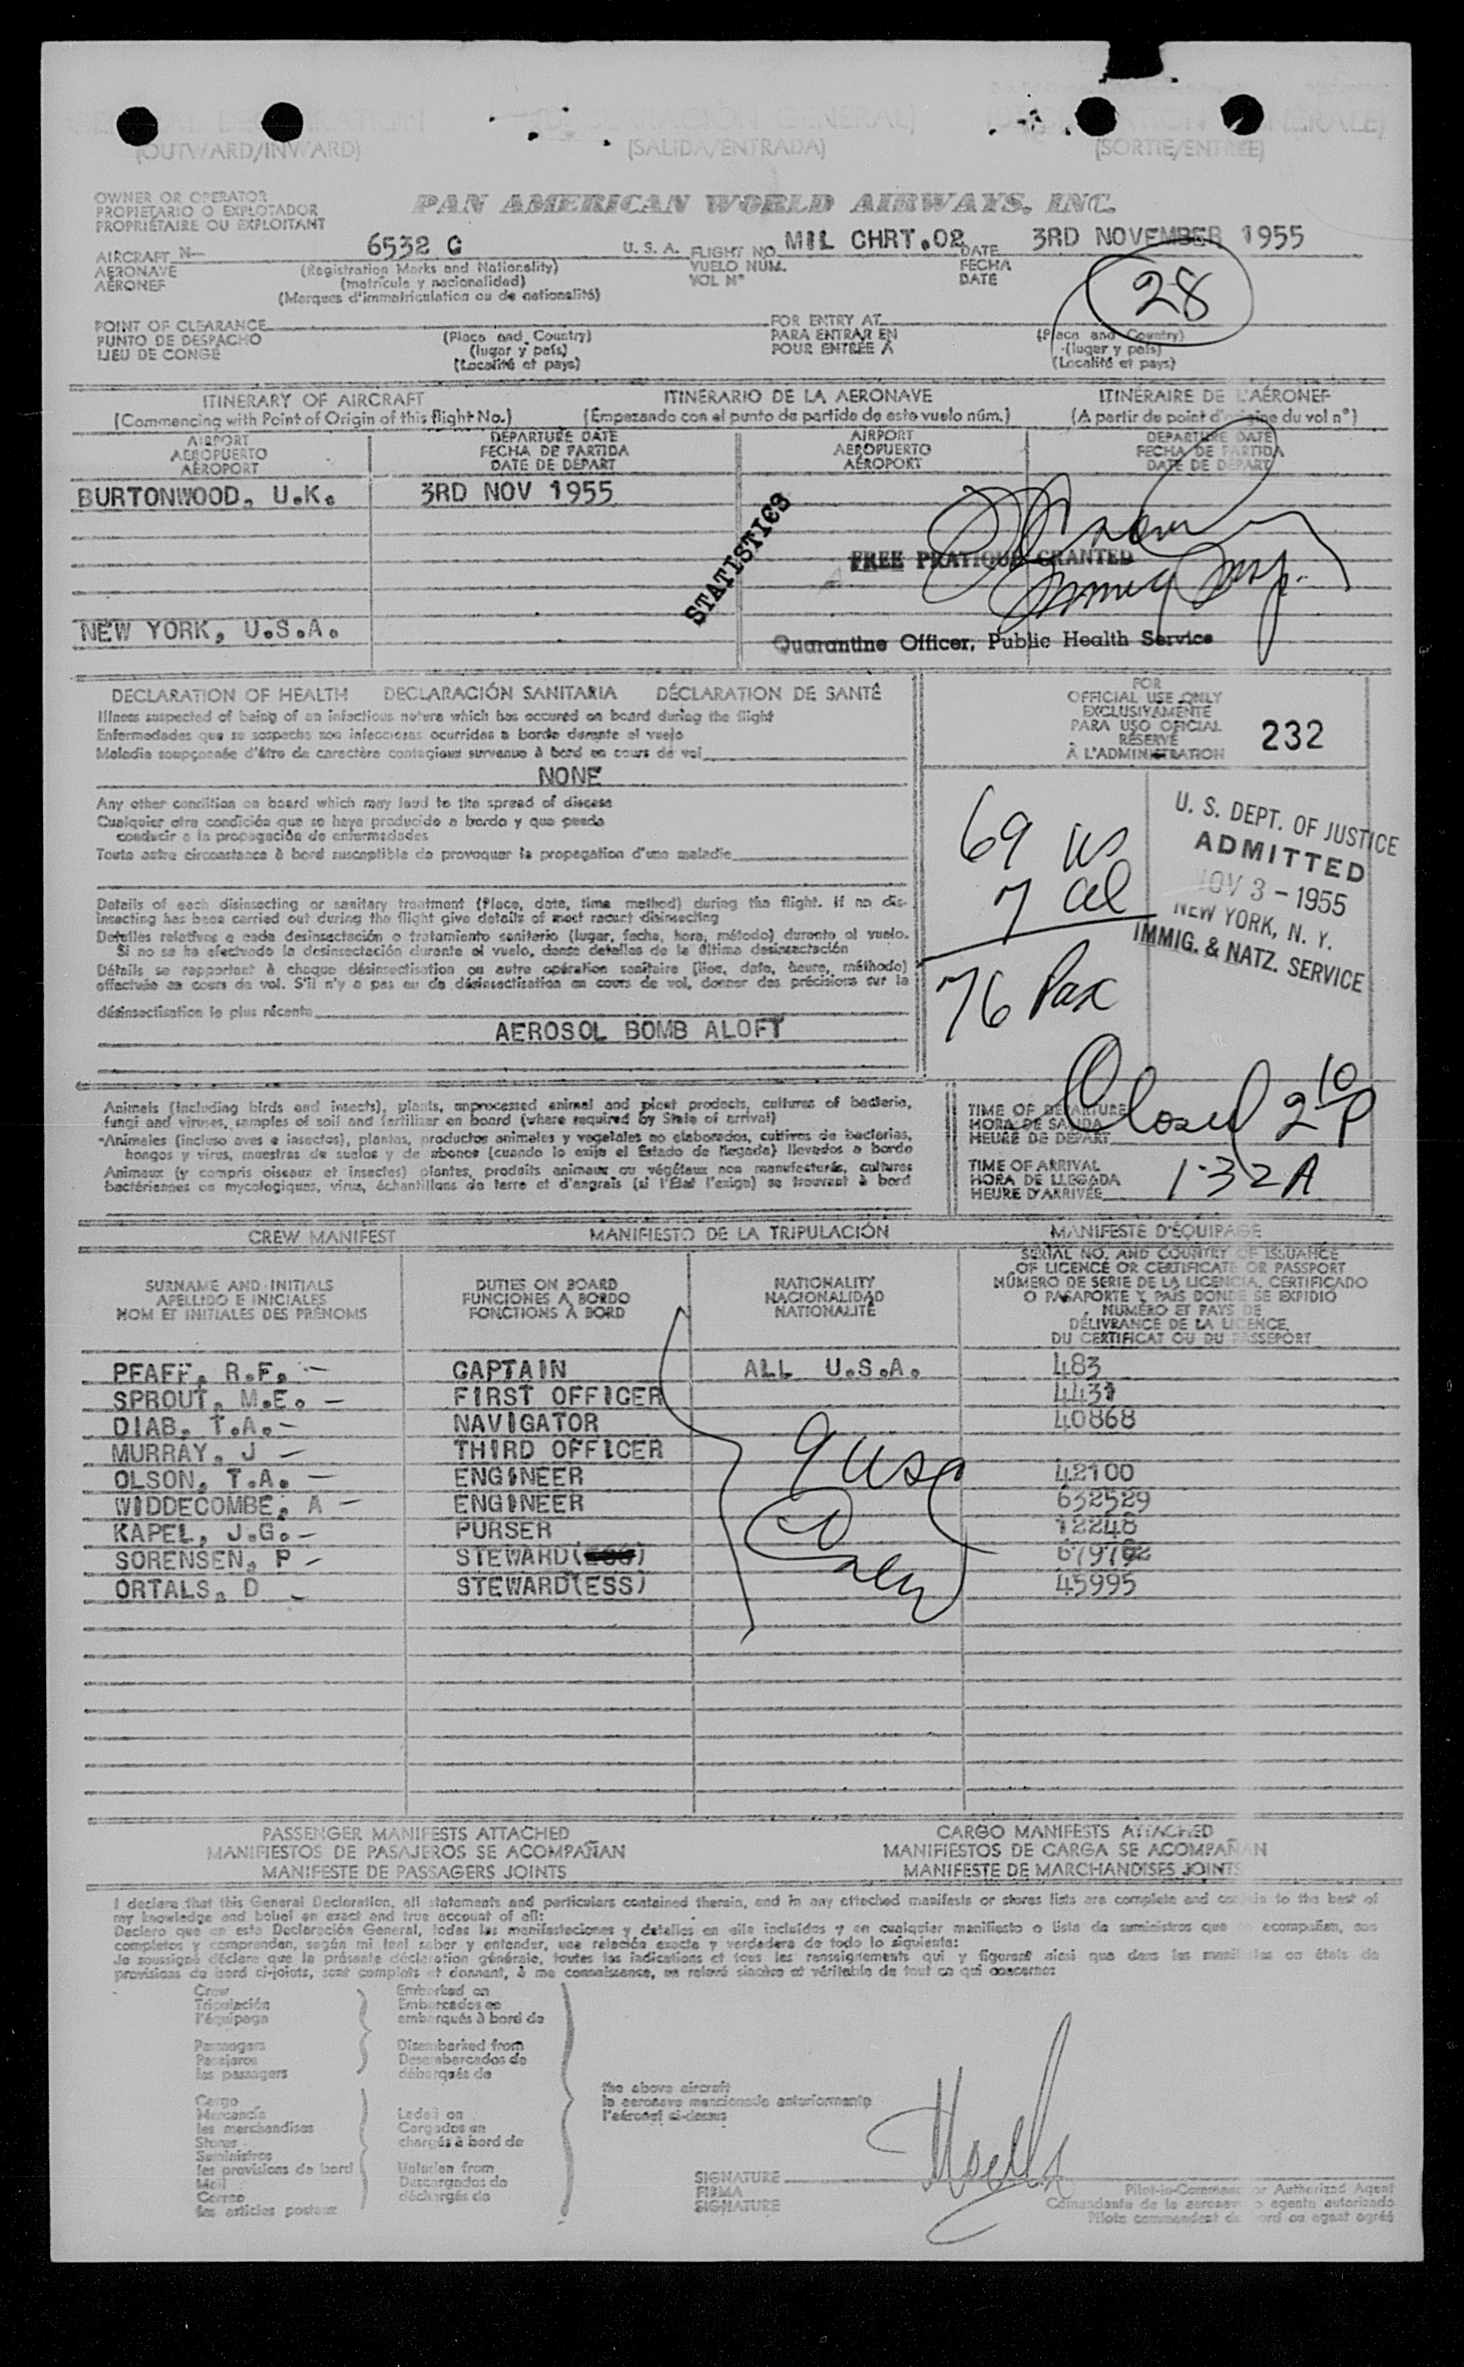 (OUTWARD/INWARD) (SALIDA/ENTRADA) (SORTIE/ENTRÉE)
OWNER OR OPERATOR
PROPIETARIO O EXPLOTADOR
PROPRIÉTAIRE OU EXPLOITANT
PAN AMERICAN WORLD AIRWAYS, INC.
AIRCRAFT N— 6532 C U. S. A. FLIGHT NO. MIL CHRT.02 DATE 3RD NOVEMBER 1955
AERONAVE (Registration Marks and Nationality) VUELO NÚM. FECHA
AÉRONEF (matrícula y nacionalidad) VOL Nº DATE
(Marques d'immatriculation ou de nationalité)
28
POINT OF CLEARANCE FOR ENTRY AT
PUNTO DE DESPACHO (Place and Country) PARA ENTRAR EN (Place and Country)
LIEU DE CONGÉ (lugar y país) POUR ENTRÉE À (lugar y país)
(Localité et pays) (Localité et pays)
ITINERARY OF AIRCRAFT ITINERARIO DE LA AERONAVE ITINÉRAIRE DE L'AÉRONEF
(Commencing with Point of Origin of this flight No.) (Empezando con el punto de partida de este vuelo núm.) (A partir de point d'origine du vol nº)
AIRPORT DEPARTURE DATE AIRPORT DEPARTURE DATE
AEROPUERTO FECHA DE PARTIDA AEROPUERTO FECHA DE PARTIDA
AÉROPORT DATE DE DÉPART AÉROPORT DATE DE DÉPART
BURTONWOOD, U.K. 3RD NOV 1955
STATISTICS
FREE PRATIQUE GRANTED
Immig Insp.
NEW YORK, U.S.A.
Quarantine Officer, Public Health Service
DECLARATION OF HEALTH DECLARACIÓN SANITARIA DÉCLARATION DE SANTÉ
Illness suspected of being of an infectious nature which has occured on board during the flight
Enfermedades que se sospecha son infecciosas ocurridas a bordo durante el vuelo
Maladie soupçonnée d'être de caractère contagieux survenue à bord en cours de vol
NONE
Any other condition on board which may lead to the spread of disease
Cualquier otra condición que se haya producido a bordo y que pueda
conducir a la propagación de enfermedades
Toute autre circonstance à bord susceptible de provoquer la propagation d'une maladie
Details of each disinsecting or sanitary treatment (Place, date, time method) during the flight. If no dis-
insecting has been carried out during the flight give details of most recent disinsecting
Detalles relativos a cada desinsectación o tratamiento sanitario (lugar, fecha, hora, método) durante el vuelo.
Si no se ha efectuado la desinsectación durante el vuelo, dense detalles de la última desinsectación
Détails se rapportant à chaque désinsectisation ou autre opération sanitaire (lieu, date, heure, méthode)
effectuée en cours de vol. S'il n'y a pas eu de désinsectisation en cours de vol, donner des précisions sur la
désinsectisation la plus récente
AEROSOL BOMB ALOFT
FOR
OFFICIAL USE ONLY
EXCLUSIVAMENTE
PARA USO OFICIAL
RÉSERVÉ
À L'ADMINISTRATION
232
69 US
7 al
76 Pax
U. S. DEPT. OF JUSTICE
ADMITTED
NOV 3 - 1955
NEW YORK, N. Y.
IMMIG. & NATZ. SERVICE
Animals (including birds and insects), plants, unprocessed animal and plant products, cultures of bacteria,
fungi and viruses, samples of soil and fertilizer on board (where required by State of arrival)
Animales (incluso aves e insectos), plantas, productos animales y vegetales no elaborados, cultivos de bacterias,
hongos y virus, muestras de suelos y de abonos (cuando lo exija el Estado de llegada) llevados a bordo
Animaux (y compris oiseaux et insectes) plantes, produits animaux ou végétaux non manufacturés, cultures
bactériennes ou mycologiques, virus, échantillons de terre et d'engrais (si l'État l'exige) se trouvant à bord
TIME OF DEPARTURE
HORA DE SALIDA
HEURE DE DÉPART
Closed 2 10 P
TIME OF ARRIVAL
HORA DE LLEGADA
HEURE D'ARRIVÉE
1-32 A
CREW MANIFEST MANIFIESTO DE LA TRIPULACIÓN MANIFESTE D'ÉQUIPAGE
SURNAME AND INITIALS
APELLIDO E INICIALES
NOM ET INITIALES DES PRÉNOMS
DUTIES ON BOARD
FUNCIONES A BORDO
FONCTIONS À BORD
NATIONALITY
NACIONALIDAD
NATIONALITÉ
SERIAL NO. AND COUNTRY OF ISSUANCE
OF LICENCE OR CERTIFICATE OR PASSPORT
NÚMERO DE SERIE DE LA LICENCIA, CERTIFICADO
O PASAPORTE Y PAÍS DONDE SE EXPIDIÓ
NUMÉRO ET PAYS DE
DÉLIVRANCE DE LA LICENCE,
DU CERTIFICAT OU DU PASSEPORT
PFAFF, R.F. — CAPTAIN ALL U.S.A. 483
SPROUT, M.E. — FIRST OFFICER 4431
DIAB, T.A. — NAVIGATOR 40868
MURRAY, J — THIRD OFFICER
OLSON, T.A. — ENGINEER 42100
WIDDECOMBE, A — ENGINEER 632529
KAPEL, J.G. — PURSER 12248
SORENSEN, P — STEWARD
ORTALS, D — STEWARD(ESS) 45995
9 USC
PASSENGER MANIFESTS ATTACHED CARGO MANIFESTS ATTACHED
MANIFIESTOS DE PASAJEROS SE ACOMPAÑAN MANIFIESTOS DE CARGA SE ACOMPAÑAN
MANIFESTE DE PASSAGERS JOINTS MANIFESTE DE MARCHANDISES JOINTS
I declare that this General Declaration, all statements and particulars contained therein, and in any attached manifests or stores lists are complete and to the best of
my knowledge and belief an exact and true account of all:
Declaro que en esta Declaración General, todas las manifestaciones y detalles en ella incluídos y en cualquier manifiesto o lista de suministros que acompañan, son
completos y comprenden, según mi leal saber y entender, una relación exacta y verdadera de todo lo siguiente:
Je soussigné déclare que la présente déclaration générale, toutes les indications et tous les renseignements qui y figurent ainsi que dans les ou états de
provisions de bord ci-joints, sont complets et donnent, à ma connaissance, un relevé sincère et véritable de tout ce qui concerne:
Crew Embarked on
Tripulación Embarcados en
l'équipage embarqués à bord de
Passengers Disembarked from
Pasajeros Desembarcados de
les passagers débarqués de
the above aircraft
la aeronave mencionada anteriormente
l'aéronef ci-dessus
Cargo
Mercancía Laded on
les marchandises Cargados en
Stores chargés à bord de
Suministros
les provisions de bord Unladen from
Mail Descargados de
Correo déchargés de
les articles postaux
SIGNATURE
FIRMA
SIGNATURE
Pilot-in-Command or Authorized Agent
Comandante de la aeronave o agente autorizado
Pilote commandant de bord ou agent agréé